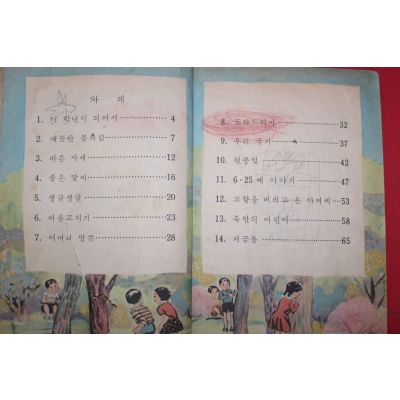 차 례
1. 이 학년이 되어서 4
2. 깨끗한 몸차림 7
3. 바른 자세 12
4. 좋은 말씨 16
5. 생글생글 20
6. 버릇고치기 23
7. 어머니 말씀 28
8. 도와드리기 32
9. 우리 국기 37
10. 현충일 42
11. 6·25 때 이야기 47
12. 고향을 버리고 온 아저씨 53
13. 북한의 어린이 58
14. 저금통 65